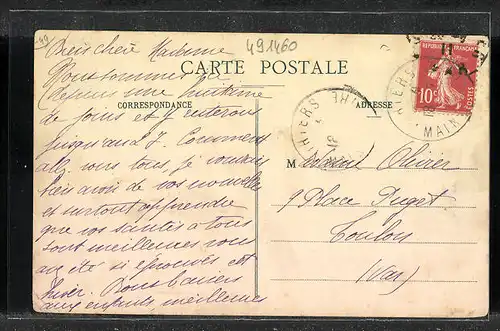 491460
CARTE POSTALE
CORRESPONDANCE
ADRESSE
Bien chère Madame
Nous sommes ici
depuis une huitaine
de jours et y resterons
jusqu'au Comment
allez vous tous, je voudrais
bien avoir de vos nouvelles
et surtout apprendre
que vos santés à tous
sont meilleures vous
avez été si éprouvés cet
hiver. Bons baisers
aux enfants, meilleures
REPUBLIQUE FRANÇAISE
10c
POSTES
VIHIERS
MAINE
Madame Olivier
9 Place Puget
Toulon
(Var)